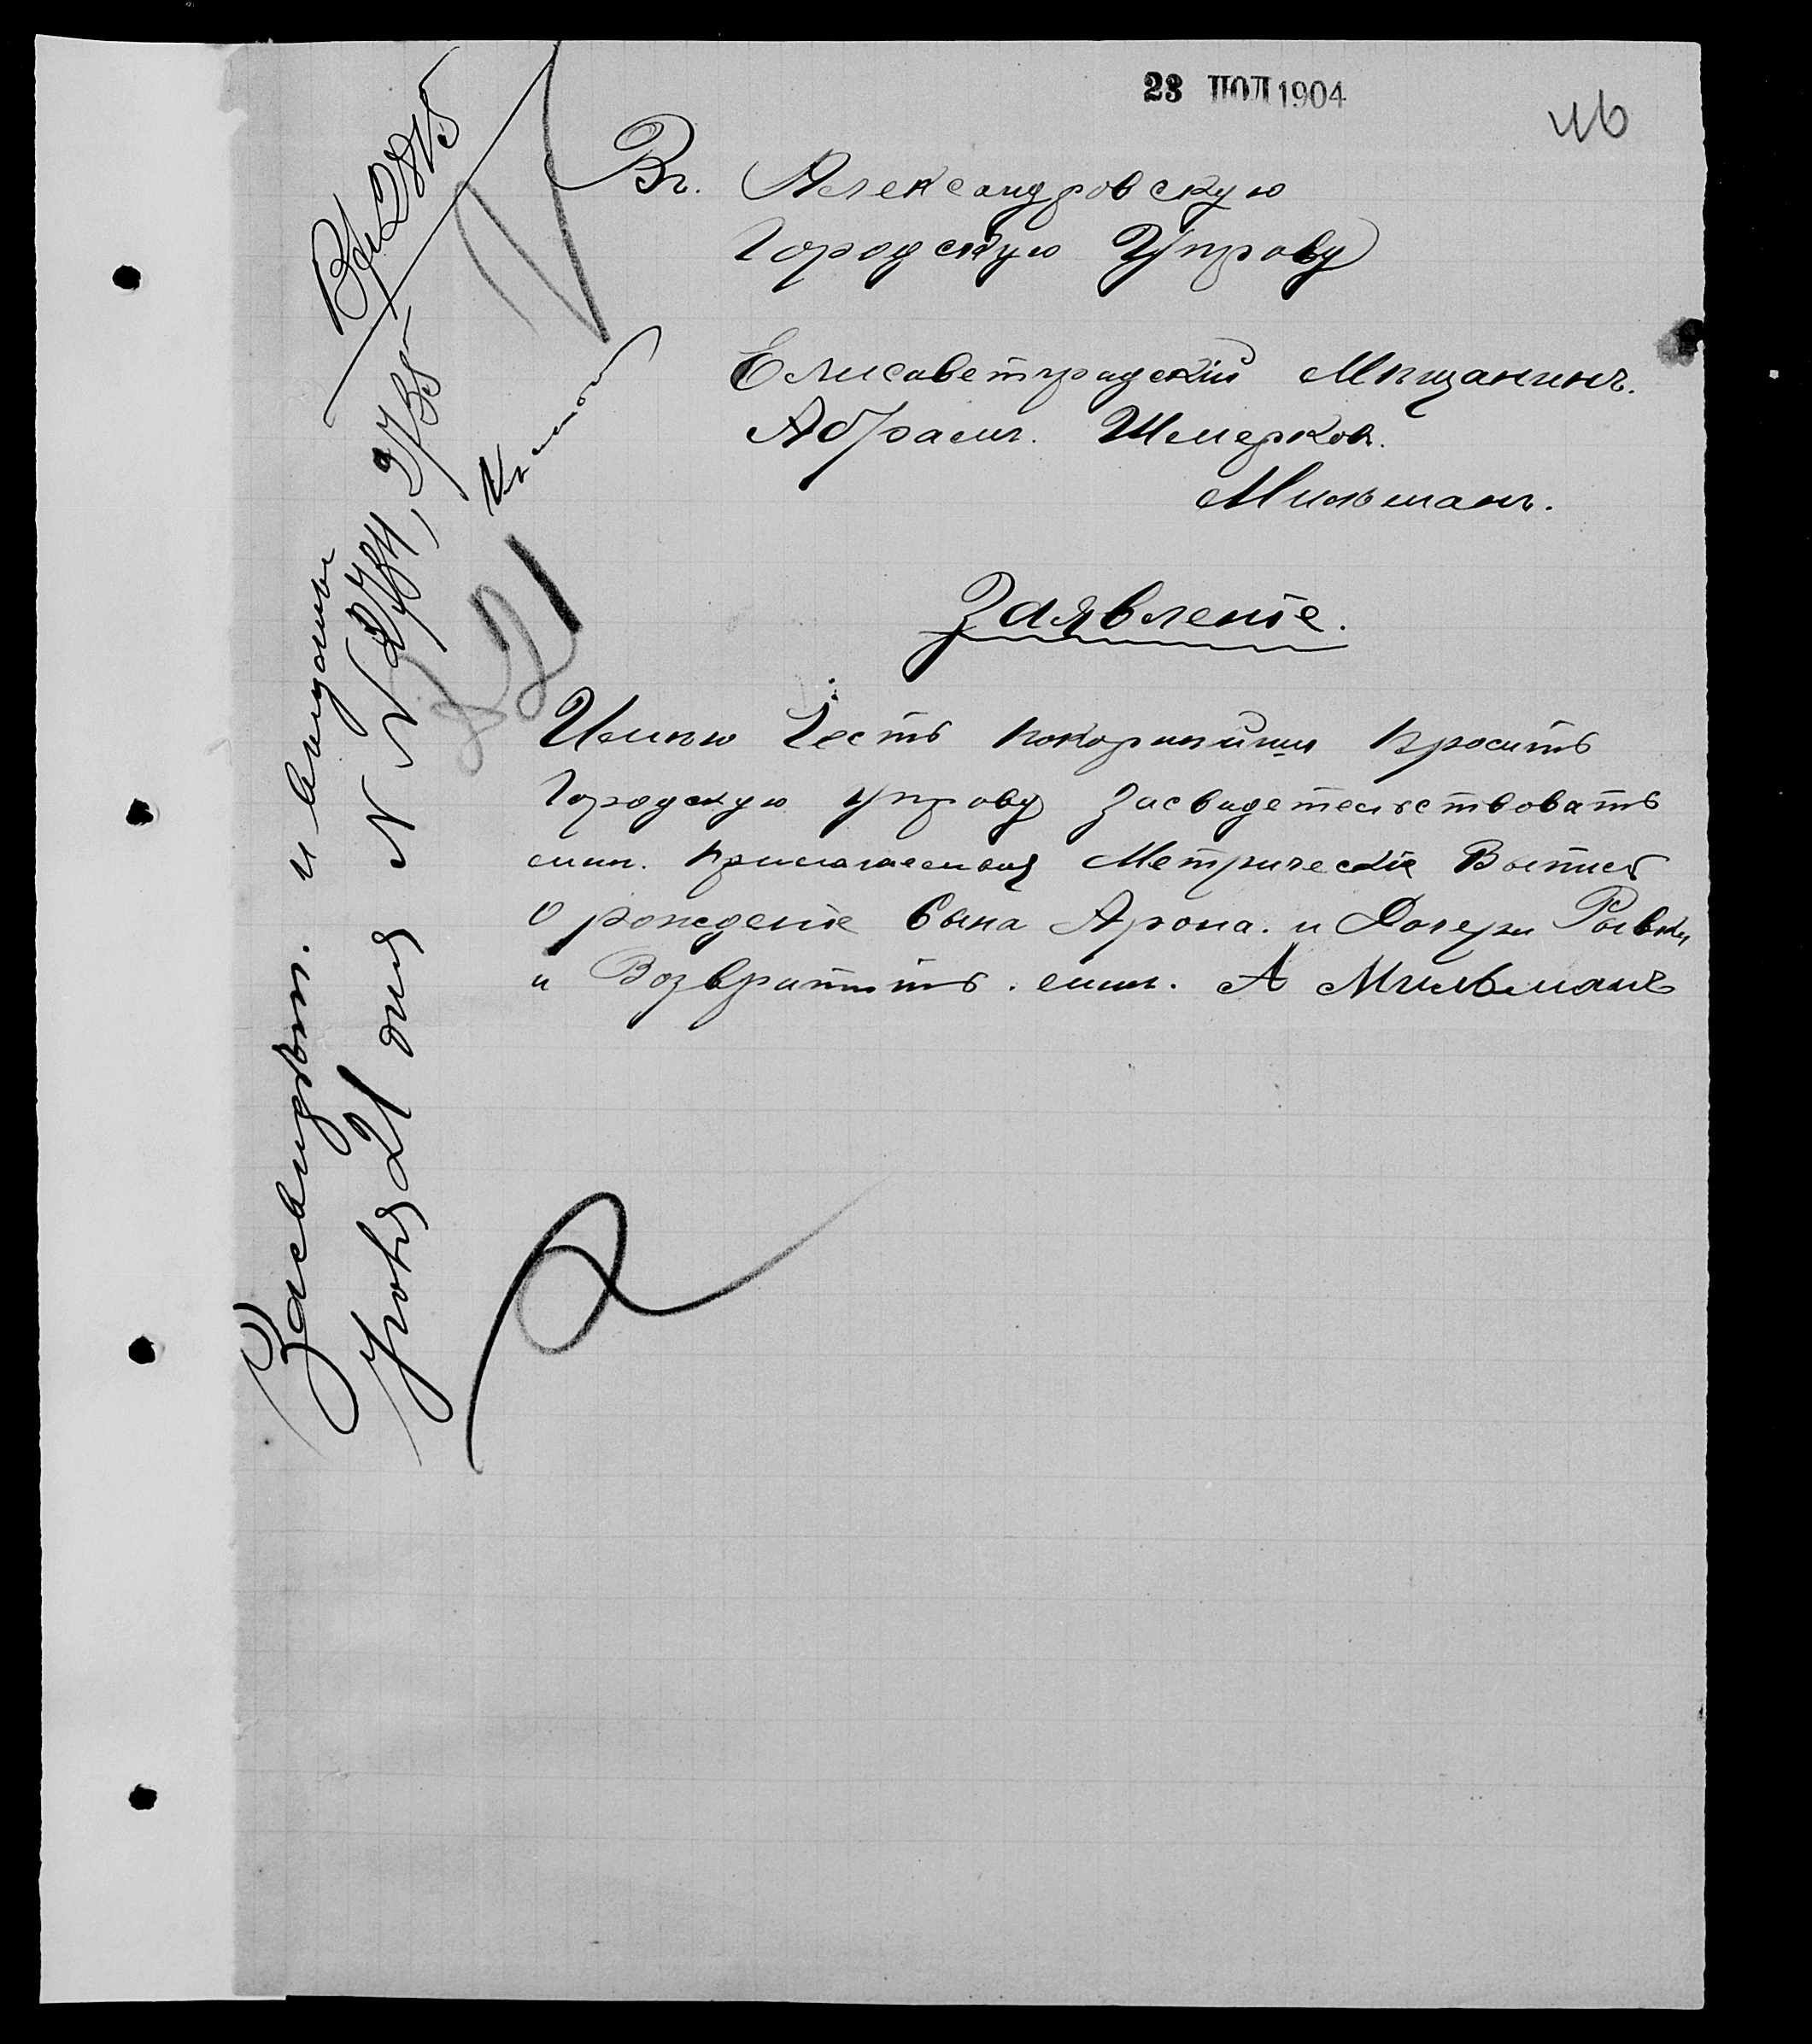 23 ІЮЛ 1904
46
Въ Александровскую
Городскую Управу
Елисаветградский Мѣщанинъ.
Абрамъ. Шмерков.
Мильманъ.
Заявленіе.
Имѣю Честь покорнѣйше просить
Городскую управу Засвидетельствовать
мнѣ. прилагаемыя Метрическіе Выписѣ
О рожденіе Сына Арона. и Дочери Рывки
и Возвратить. мнѣ. А Мильманъ
Засвидѣт. и выданы
21 дня N N 2734, 2735
821